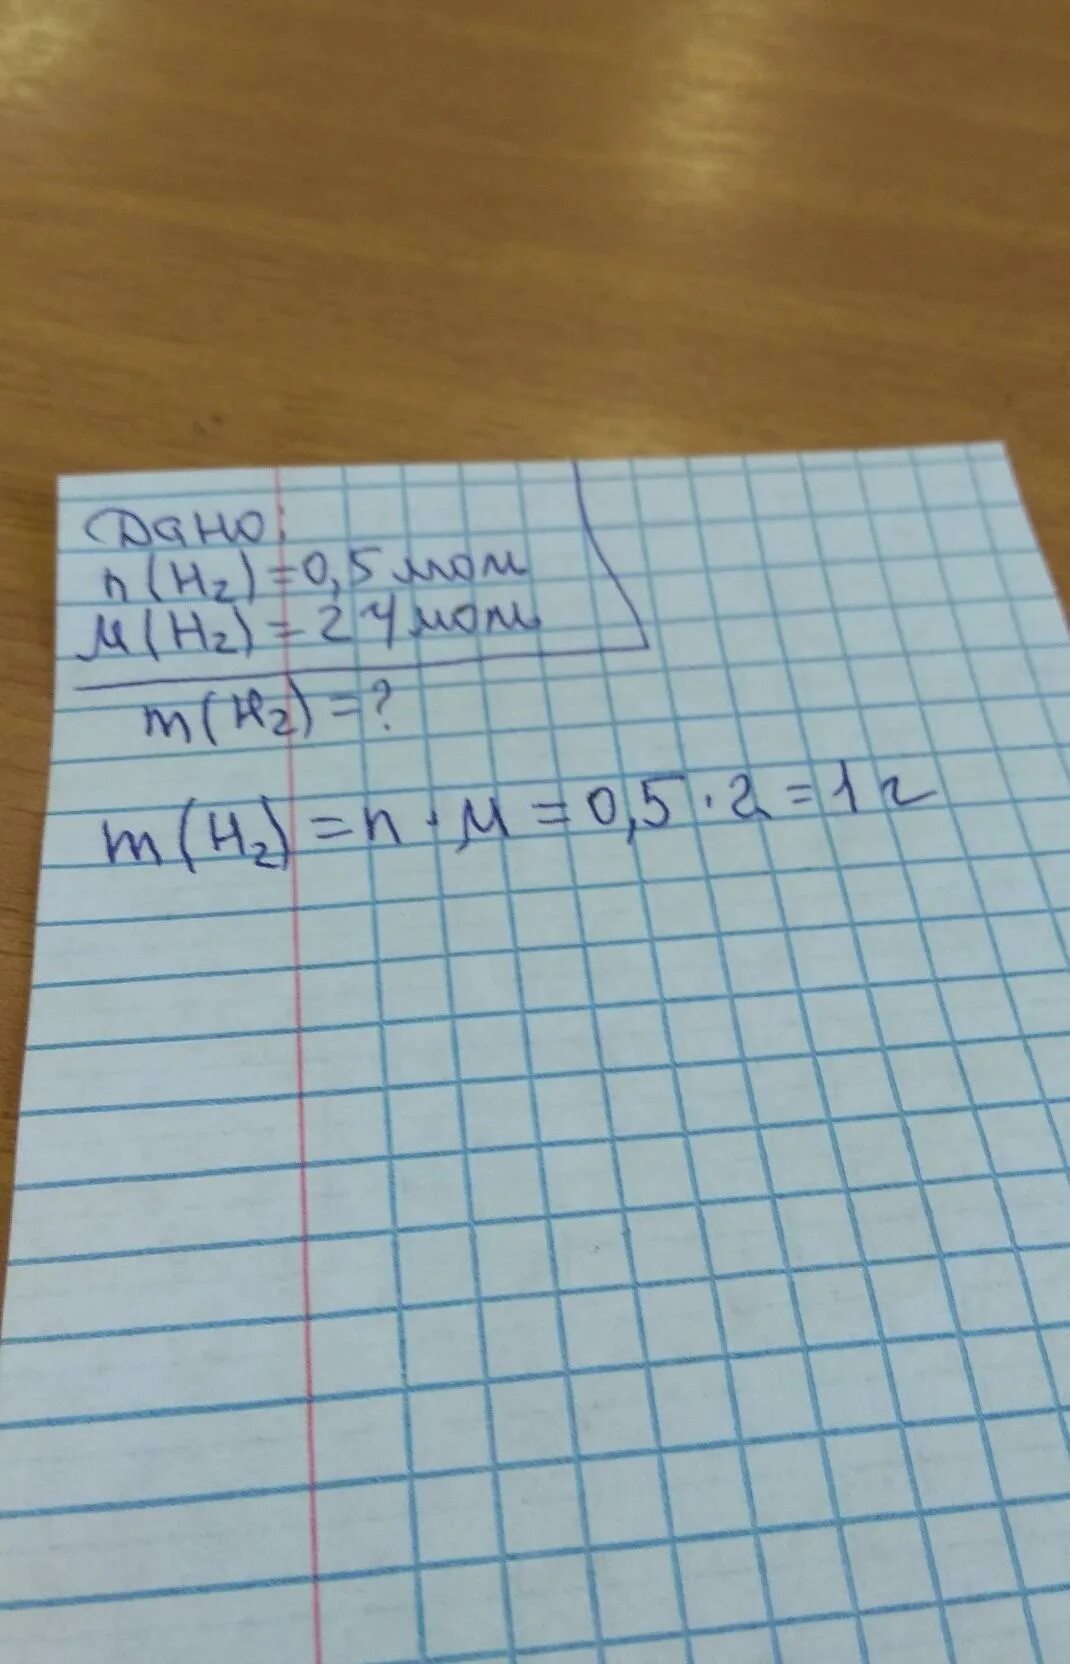 Дано:
n(H₂)=0,5 моль
M(H₂)=2 г/моль
m(H₂)=?
m(H₂)=n·M=0,5·2=1г